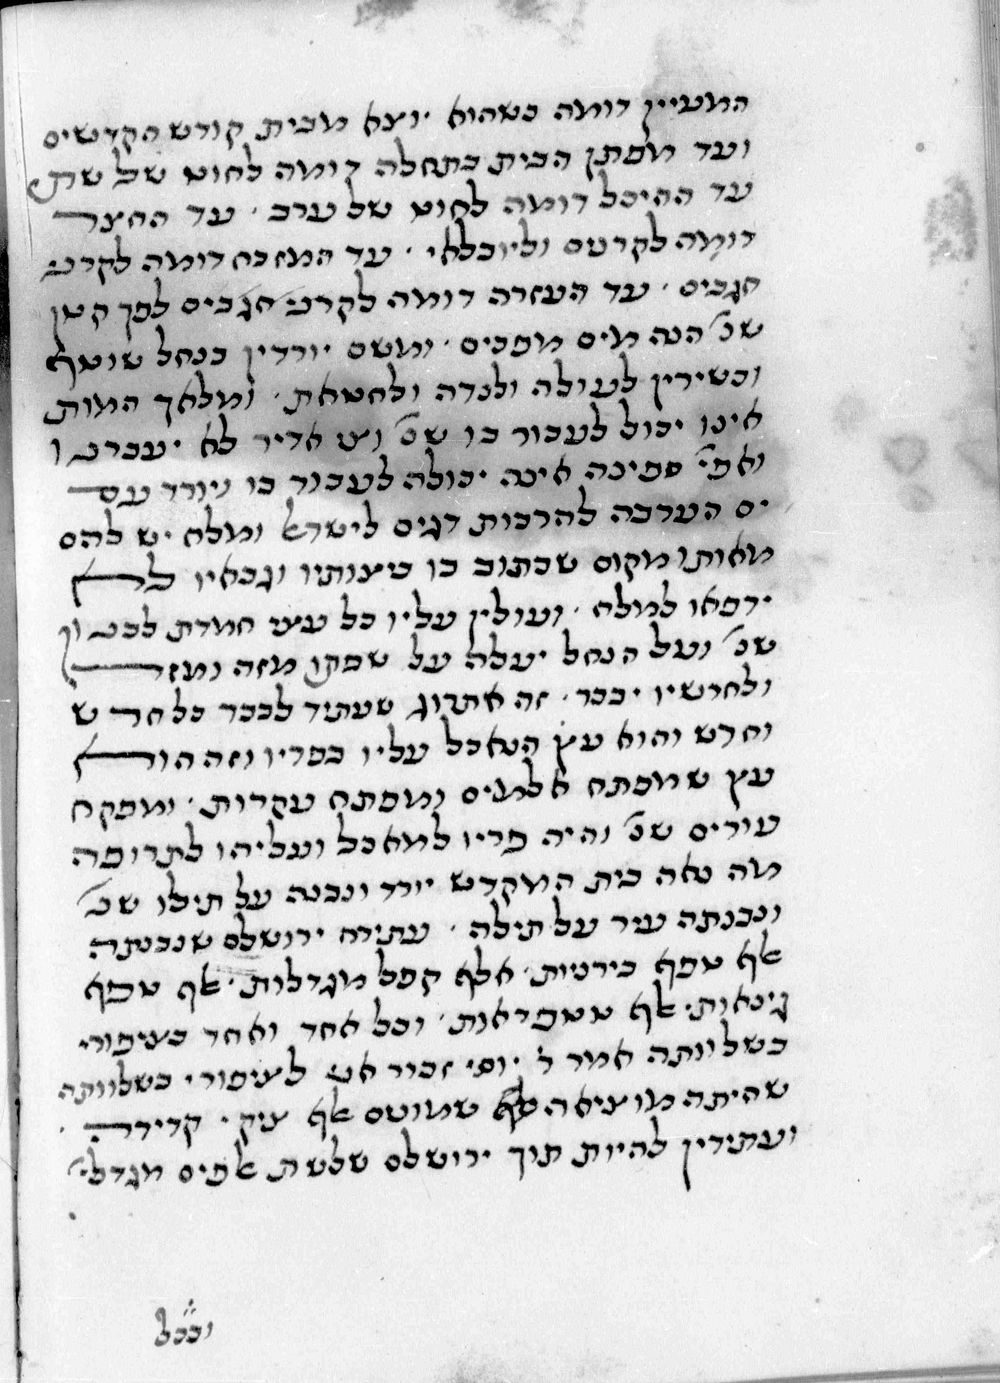 המעיין דומה כשהוא יוצא מבית קודש הקדשים
ועד מפתן הבית בתחלה דומה לחוט של שתי
עד ההיכל דומה לחוט של ערב · עד החצר
דומה לקרטס וליובלאי · עד המזבח דומה לקרני
חגבים · עד העזרה דומה לקרני חגבים לפך קטן
שנ׳ הנה מים מפכים · ומשם יורדין כנחל שוטף
וכשירין לעולה ולנדה ולחטאת · ומלאך המות
אינו יכול לעבור בו שנ׳ וצי אדיר לא יעברנו
ואפי׳ ספינה אינה יכולה לעבור בו ויורד עם
ים הערבה להרבות דגים לישראל ומלח יש להם
מאותו מקום שכתוב בו ביצותיו וגבאיו לא
ירפאו למלח · ועולין עליו כל עצי חמדת לבנון
שנ׳ ועל הנחל יעלה על שפתו מזה ומזה
ולחדשיו יבכר · זה אתרוג שעתיד לבכר כל חדש
וחדש והוא עץ הנאכל עליו כפריו וזה הוא
עץ שמפתח אלמים ומפתח עקרות · ומפקח
עורים שנ׳ והיה פריו למאכל ועליהו לתרופה
מה נאה בית המקדש יורד ונבנה על תילו שנ׳
ונבנתה עיר על תילה · עתידה ירושלם שנבנתה
אלף טפא כירניות · אלף קפל מגדלות · אלף טפא
גינאות · אלף טטפראות · וכל אחד ואחד כציפורי
כשלוותה אמר ר׳ יוסי זכור אני לציפורי כשלוותה
שהיתה מוציאה שמונים אלף ציק · קדירה ·
ועתידין להיות תוך ירושלם שלשת אלפים מגדלי׳
וככל